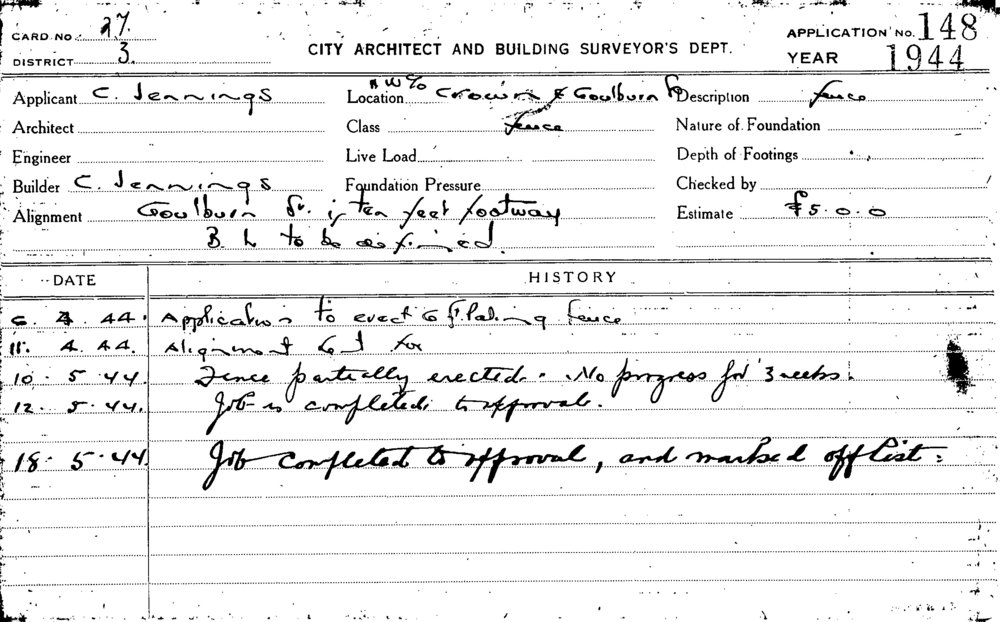 CARD NO 27.
DISTRICT 3.
CITY ARCHITECT AND BUILDING SURVEYOR'S DEPT.
APPLICATION No. 148
YEAR 1944
Applicant C. Jennings
Location N W/c Crown & Goulburn St
Description fence
Architect
Class fence
Nature of Foundation
Engineer
Live Load
Depth of Footings
Builder C. Jennings
Foundation Pressure
Checked by
Alignment Goulburn St. is ten feet footway
Estimate £5.0.0
B L to be defined
DATE HISTORY
6. 4. 44. Application to erect 6 ft paling fence
11. 4. 44. Alignment for
10. 5. 44. Fence partially erected. No progress for 3 weeks.
12. 5. 44. Job is completed to approval.
18. 5. 44. Job completed to approval, and marked off list: